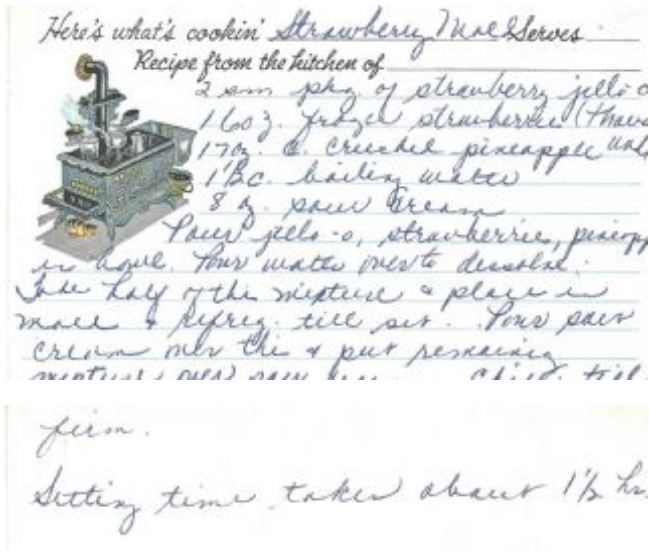 Here's what's cookin' Strawberry Mold Serves
Recipe from the kitchen of
2 sm pkg of strawberry jello
1 60z. frozen strawberries (thaw
17oz. c. crushed pineapple
1½c. boiling water
8 oz. sour cream
Pour jello-o, strawberries, pineapp
in bowl. Pour water over to dessolve.
Take half of this mixture & place in
mold & refrig. till set. Pour sour
cream over this & put remaining
mixture over sour cream chill till
firm.
Setting time takes about 1½ hr.